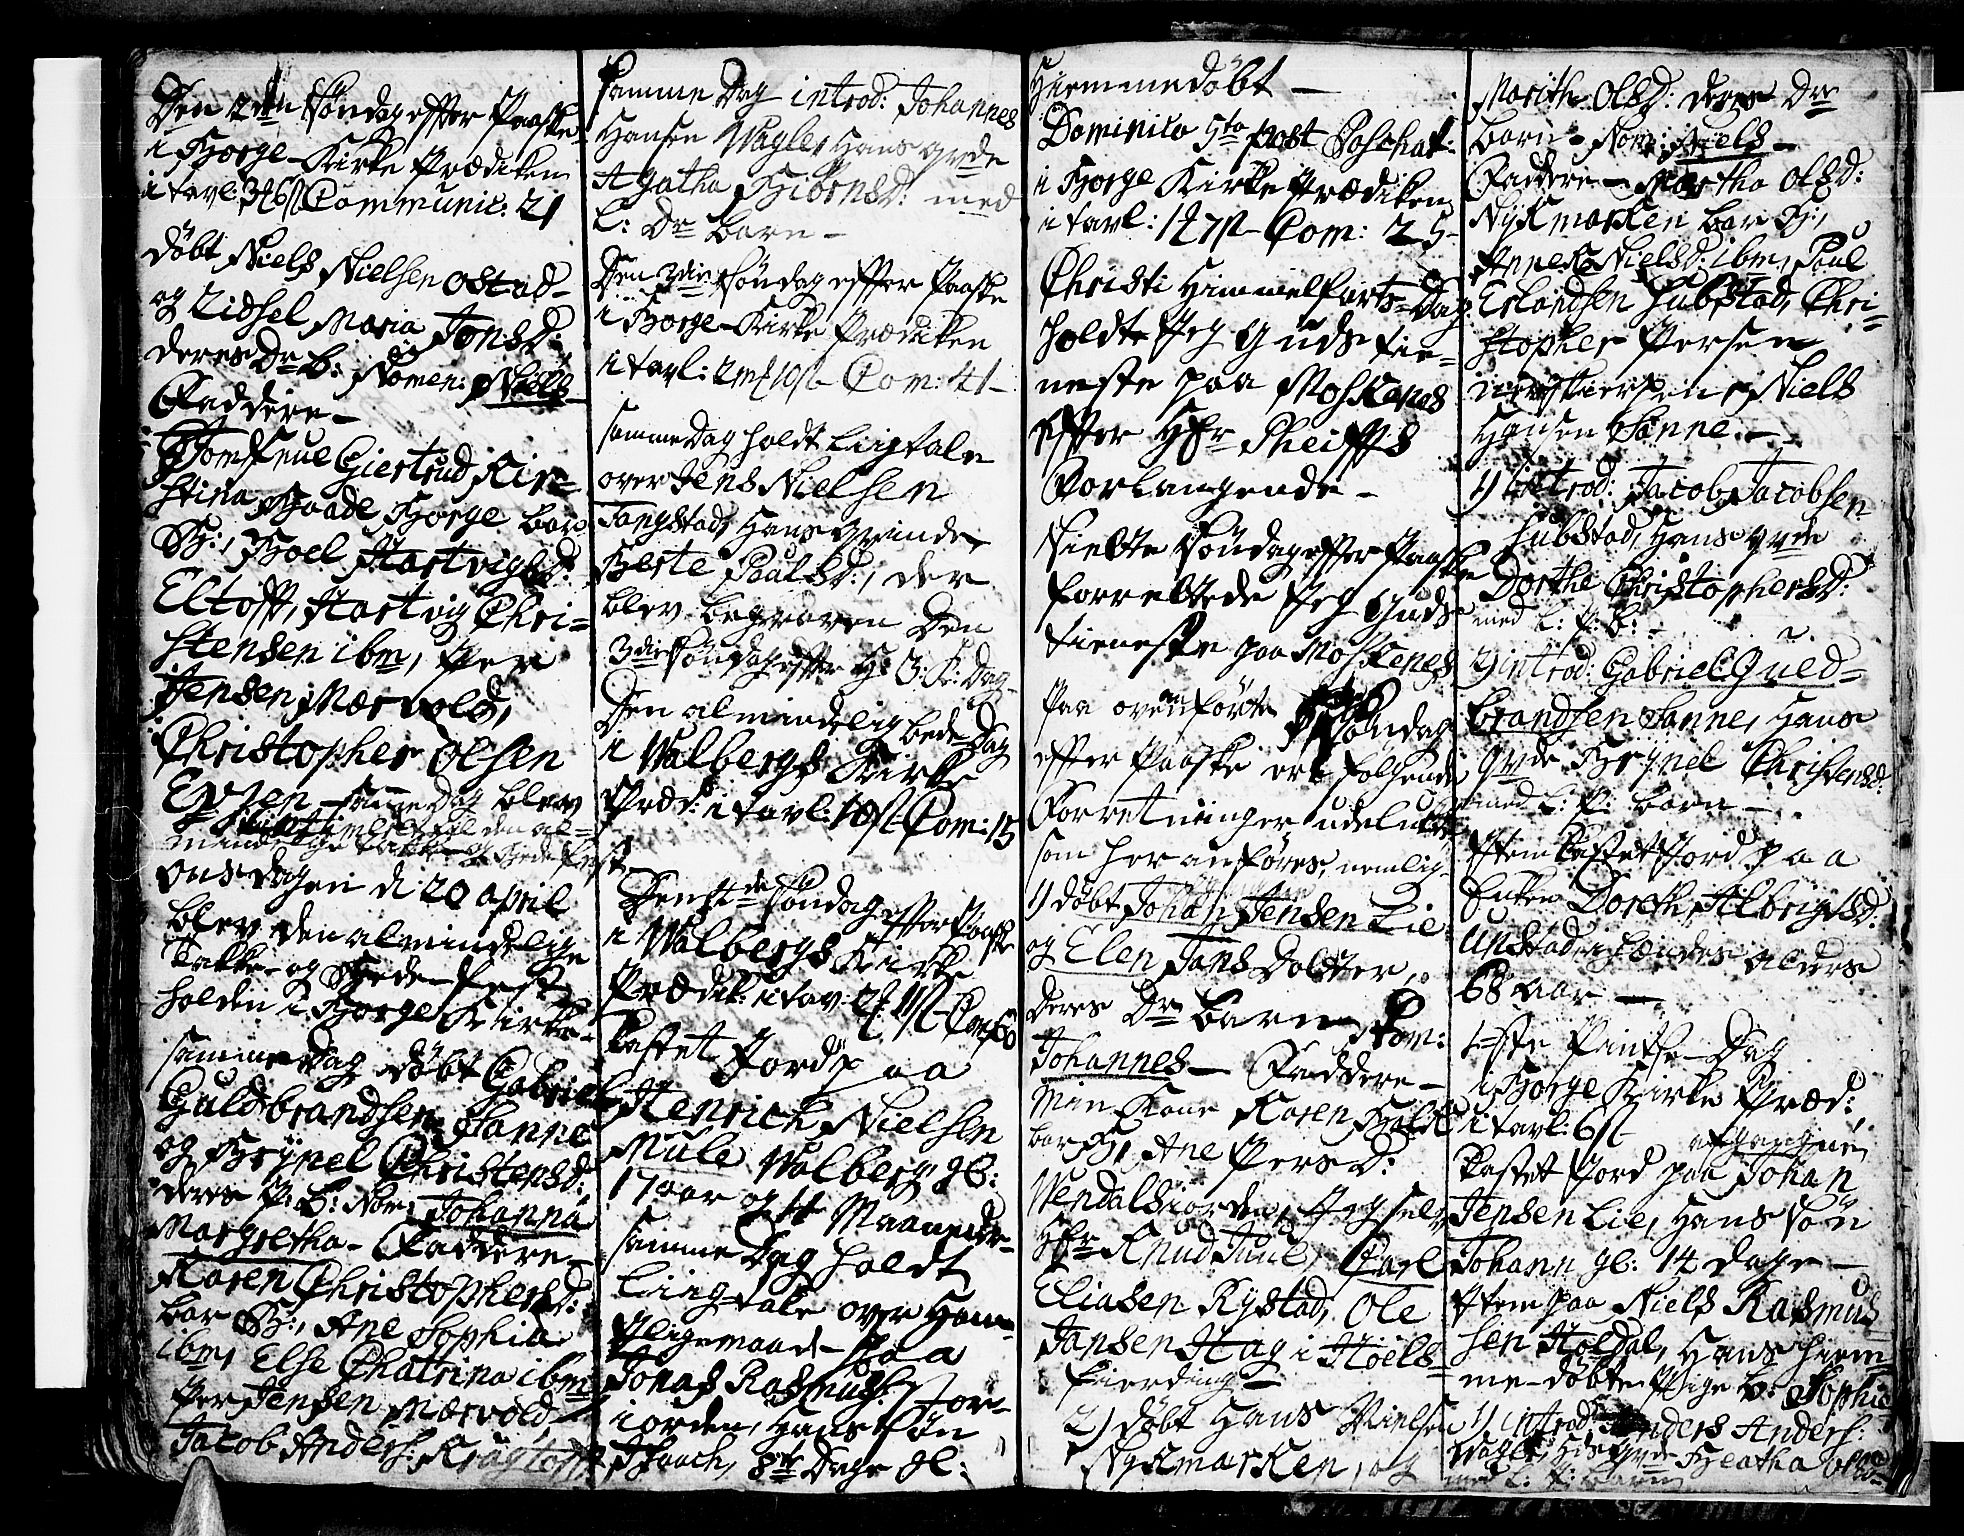 Den 2den Søndag efter Paaske
i Borge Kirke Prædiken
i tavl: 3 # 6 sk Communic: 21
døbt Niels Nielsen Ostad
og Zidsel Maria Jonsd:
deres Dr b: Nomen: Niels
Faddere –
Jomfrue Giertrud Kir-
stina Baade Borge bar
B:, Boel Hartvigsd:
Eltoft, Hartvig Chri-
stensen ibm, Per
Jensen Mærvold,
Christopher Olsen
Eggen – samme Dag blev
til den al-
mindelige Takke og Bede Fest
Onsdagen d: 20 april
blev den almindelige
Takke- og Bede-Fest
holden i Borge Kirke.
samme Dag døbt Gabriel
Guldbrandsen Sanne
og Brynel Christensd:
deres P. B: Nom: Johanna
Margretha – Faddere –
Karen Christophersd:
bar B:, Ane Sophia
ibm, Else Chatrina ibm
Per Jensen Mærvold
Jacob Anders: Kragtoft
samme Dag introd: Johannes
Hansen Vagle, Hans qvde
Agatha Biörnsd: med
L: Dr barn –
Den 3die Søndag efter Paaske
i Borge Kirke Prædiken
i tavl: 2 m# 10 sk Com: 41 –
samme Dag holdt Ligtale
over Jens Nielsen
Tangstad, Hans qvinde
Berte Paulsd:, der
blev begraven Den
3die Søndag efter H: 3: K: Dag
Den almindelig bede Dag
i Valbergs Kirke
Præd: i tavl: 10 sk Com: 15
Den 4de Søndag efter Paaske
i Valbergs Kirke
Prædik: i tav: 2 # 11 sk Com: 60
Kastet Jord paa
Henrick Nielsen
Mule Valberg gl:
17 aar og 4 Maaneder
samme Dag holdt
Liig-tale over Ham
Ligemaade paa
Jonas Rasmuss: Stor-
iorden, Hans søn
Isaach, 8te Dage gl:
Hiemmedøbt –
Dominica 5ta post Paschat:
i Borge Kirke Prædiken
i tavl: 1 # 7 sk – Com: 25 –
Christi Himmelfarts-Dag
holdt Jeg Guds tie-
neste paa Moskenes
efter Hr Pheiffs
Forlangende –
siette Søndag efter Paaske
forrettede Jeg Guds
tieneste paa Moskenes
Paa ovenførte Søndag
efter Paaske ere følgende
Forretninger udelukt,
som her anføres, nemlig
1) døbt Johan Jensen Lie
og Elen Jans Dotter,
deres Dr barn Nom:
Johannes – Faddere –
Min Kone Karen
bar B, Ane Persd:
Vendalsiorden, Jeg selv
Hr Knud Juul, Carl
Eliasen Rystad, Ole
Jansen Hag i Høels-
fierding –
2) døbt Hans Nielsen
Nykmarken, og
Marith Olsd: deres Dr
barn – Nom: Niels –
Faddere – Martha Olsd:
Nykmarken bar B:,
Anne Nielsd: ibm, Paul
Erlandsen Hubstad, Chri-
stopher Persen
Niels
Hansen Sanne. –
1) introd: Jacob Jacobsen
Hubstad, Hans qvde
Dorthe Christophersd:
med L: P: B: –
2) introd: Gabriel Guld-
brandsen Sanne, Hans
qvde Brynel Christensd:
med L: P: barn –
Item Kastet Jord paa
Enken Doreth Albrigtsd:
Unstad, hændes alders
68 aar –
1ste Pintse-Dag
i Borge Kirke Præd:
i tavl: 6 sk
Kastet Jord paa afgangne Johan
Jensen Lie, Hans søn
Johann gl: 14 dage –
Item paa Niels Rasmus
sen Holdal, Hans hiem-
me-døbte Pige b: Sophie
1) introd: Anders Anders:
Vagle, Hans qvde Beatha
med L: P: barn